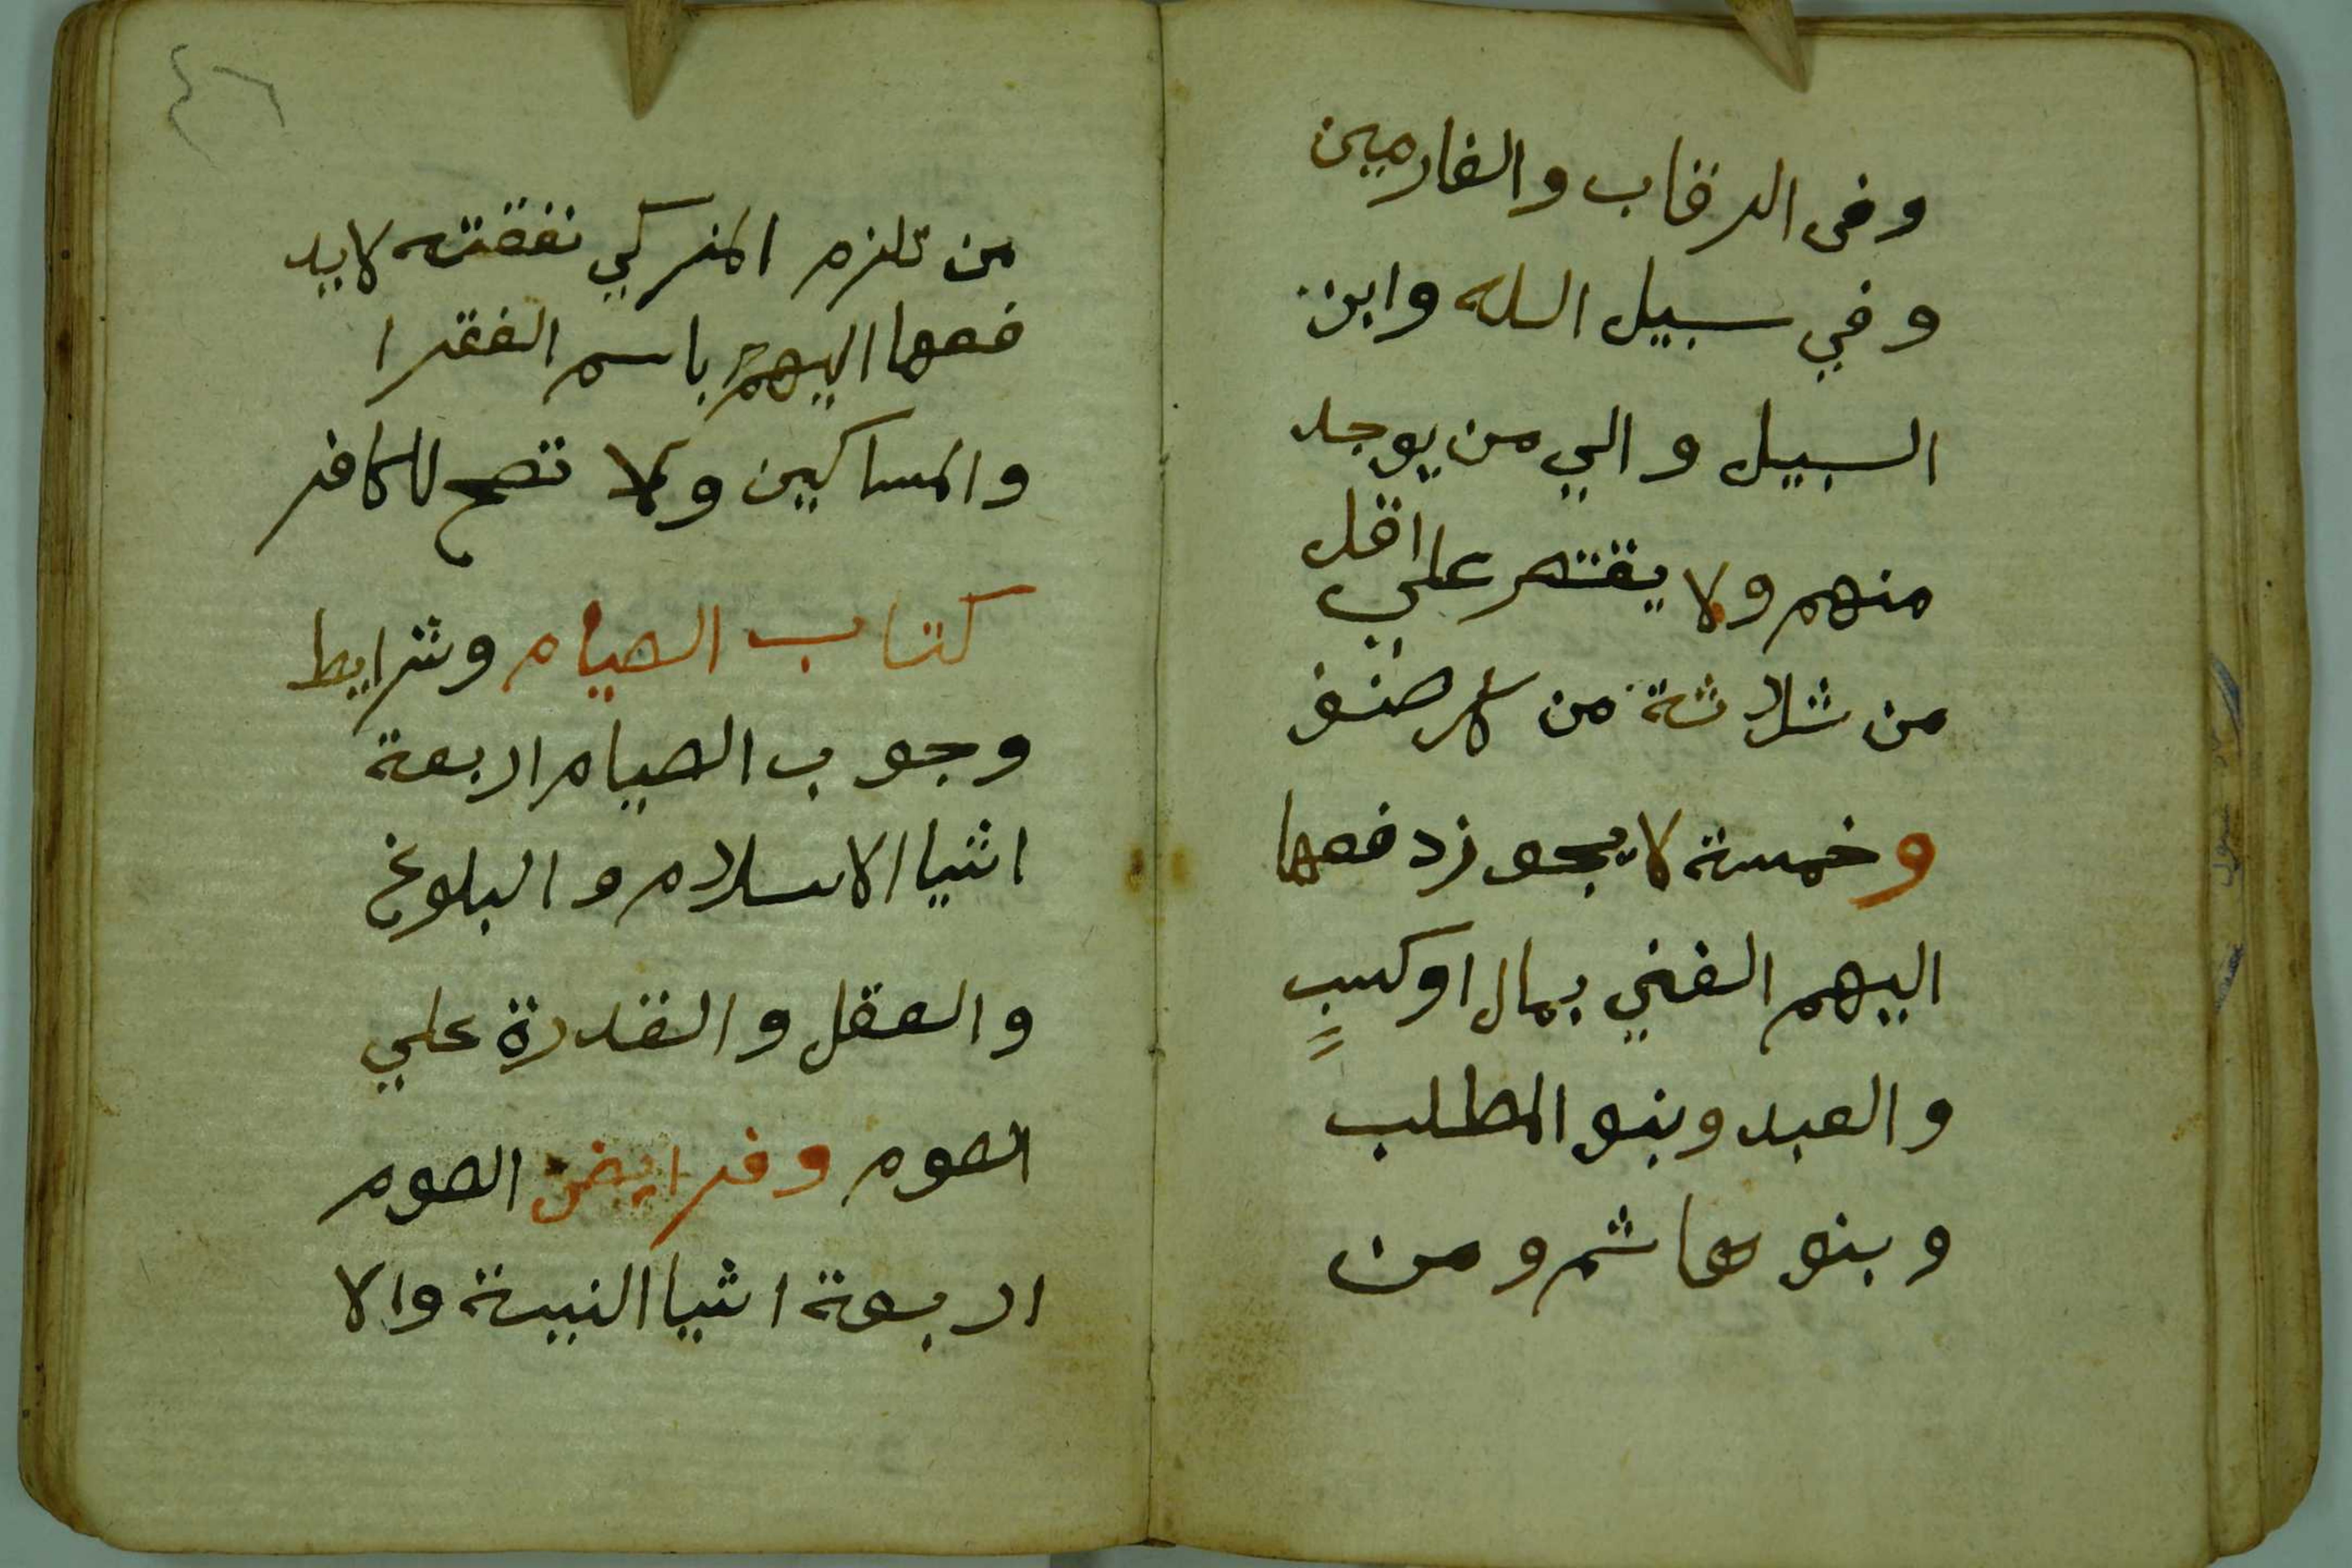 وفى الرقاب والغارمين
وفي سبيل الله وابن
السبيل والي من يوجد
منهم ولا يقتصر علي اقل
من ثلاثة من كل صنف
وخمسة لا يجوز دفعها
اليهم الغني بمال او كسبٍ
والعبد وبنو المطلب
وبنو هاشم ومن
٤٦
من تلزم المزكي نفقته لا يد
فعها اليهم باسم الفقرا
والمساكين ولا تصح للكافر
كتاب الصيام وشرايط
وجوب الصيام اربعة
اشيا الاسلام والبلوغ
والعقل والقدرة علي
الصوم وفرايض الصوم
اربعة اشيا النية والا